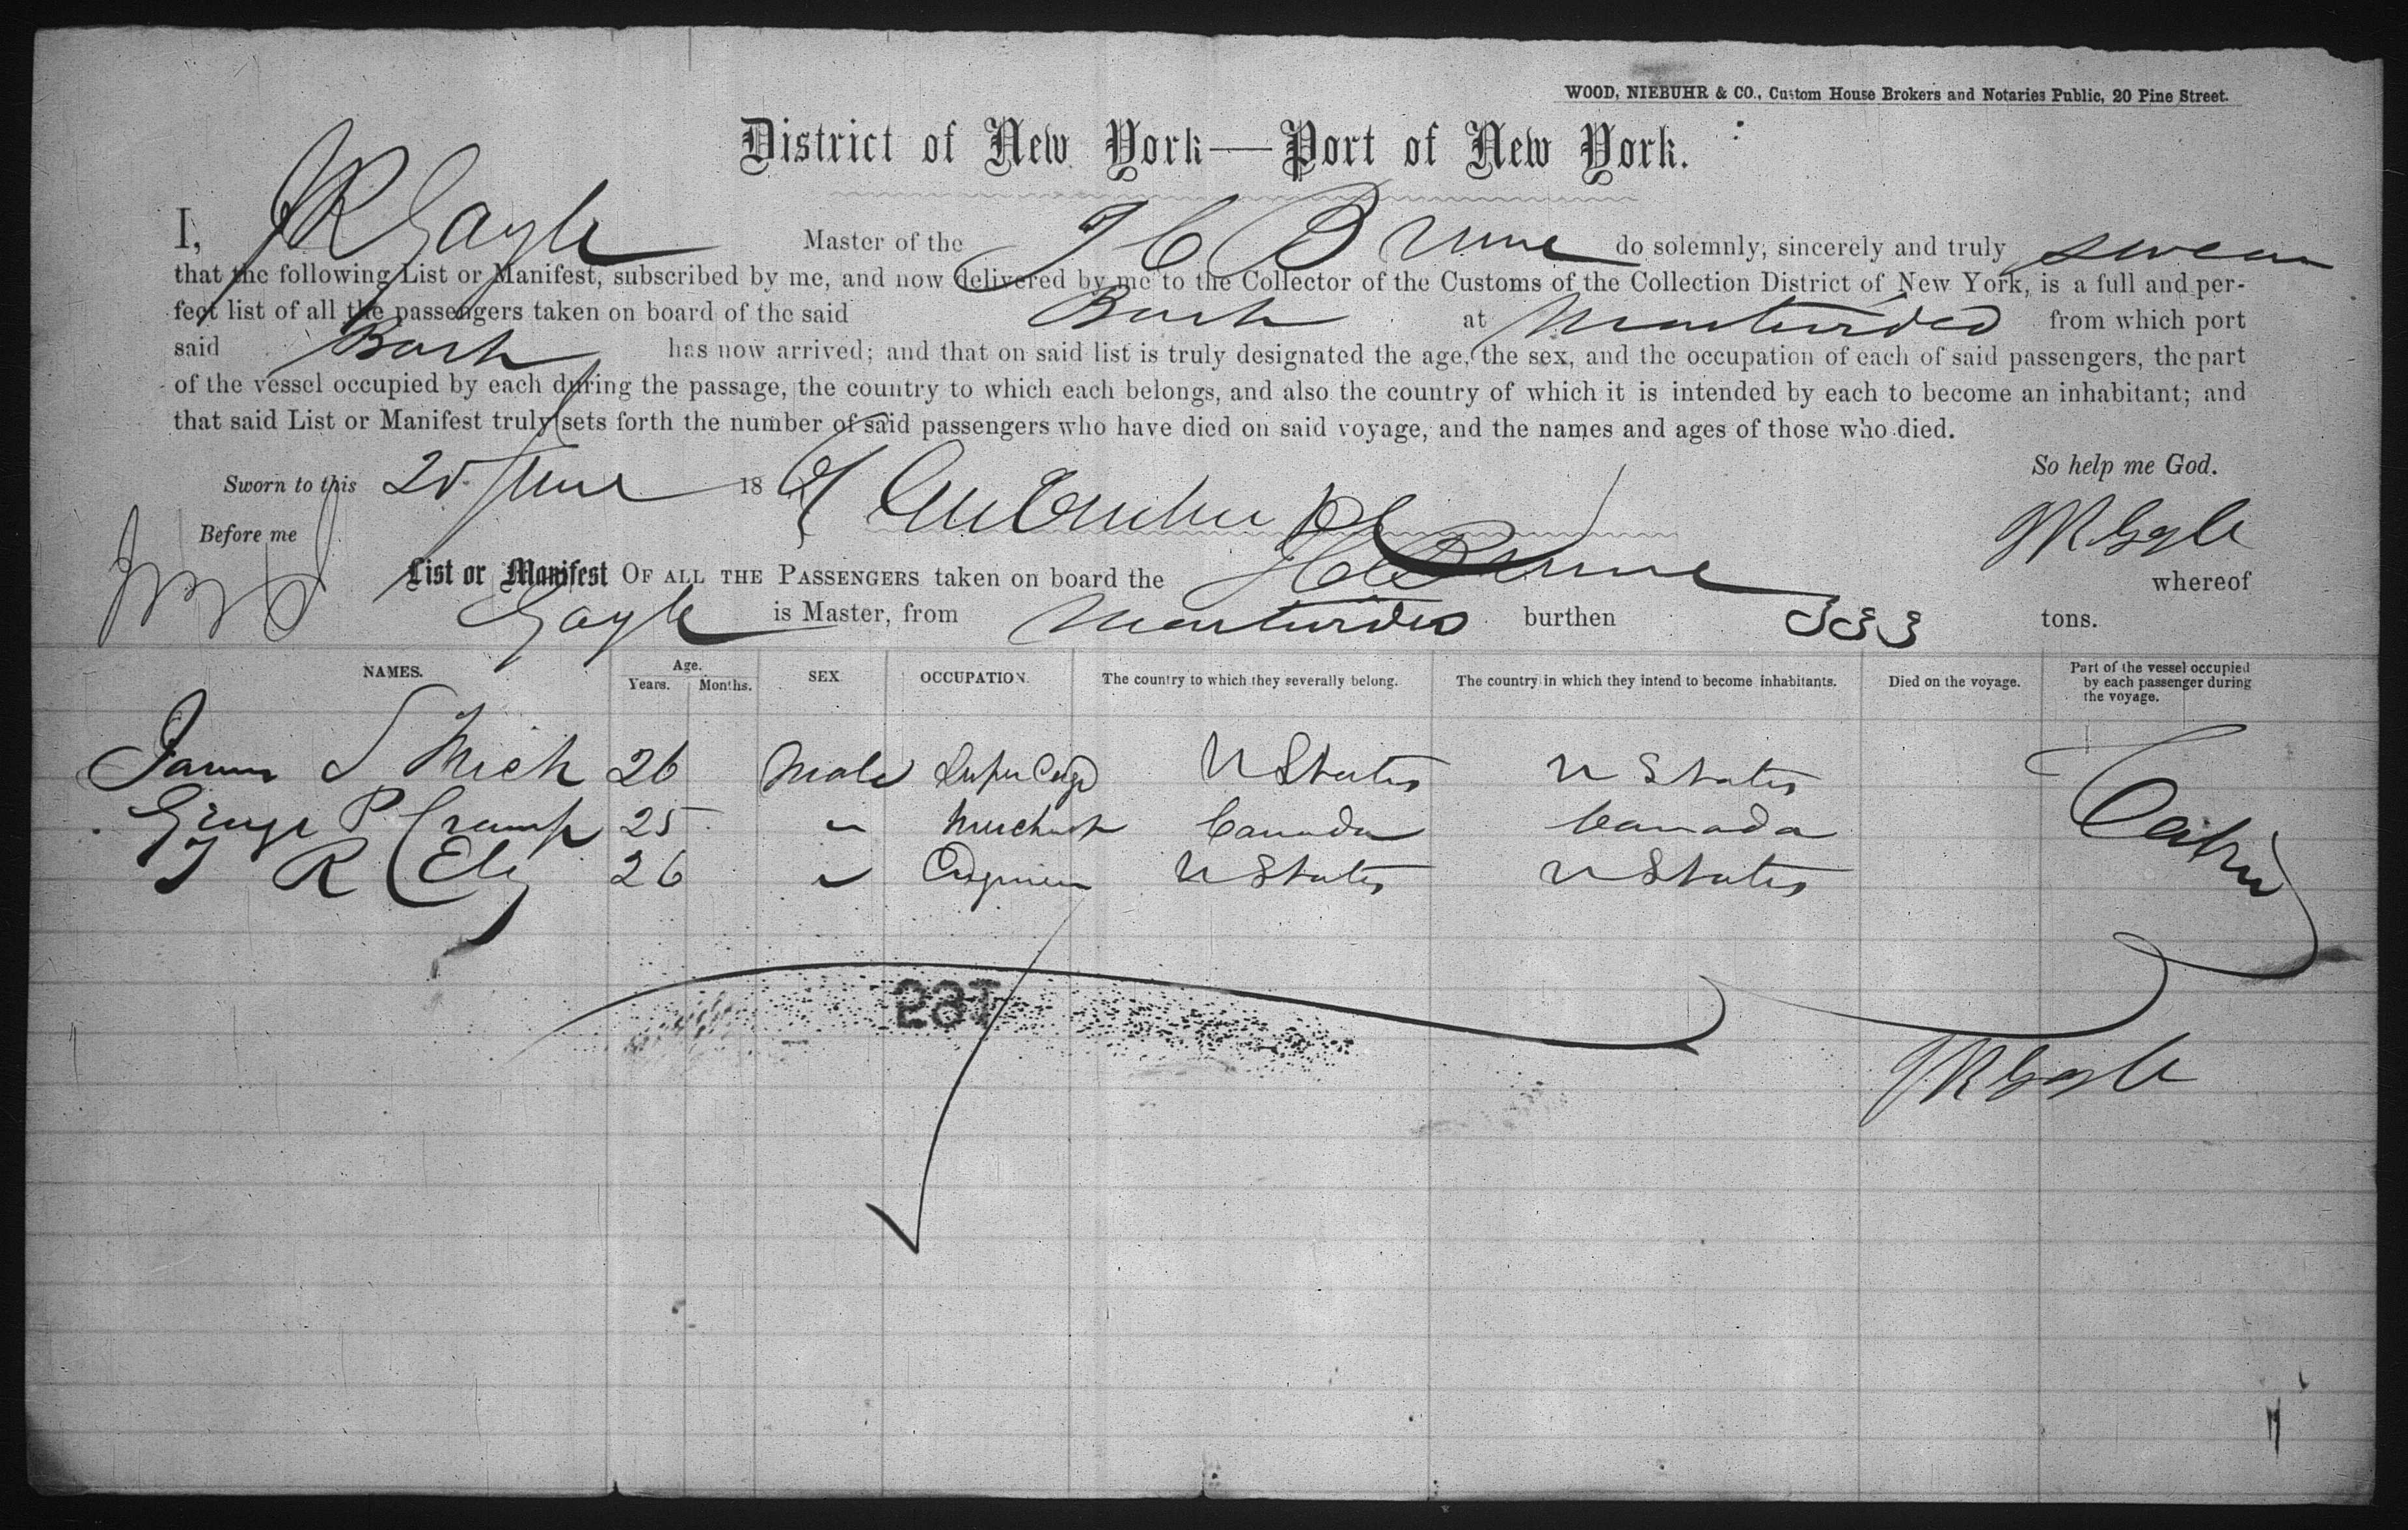 WOOD, NIEBUHR & CO., Custom House Brokers and Notaries Public, 20 Pine Street.
District of New York—Port of New York.
I, J R Gayle Master of the T C Brune do solemnly, sincerely and truly swear
that the following List or Manifest, subscribed by me, and now delivered by me to the Collector of the Customs of the Collection District of New York, is a full and per-
fect list of all the passengers taken on board of the said Bark at Montevideo from which port
said Bark has now arrived; and that on said list is truly designated the age, the sex, and the occupation of each of said passengers, the part
of the vessel occupied by each during the passage, the country to which each belongs, and also the country of which it is intended by each to become an inhabitant; and
that said List or Manifest truly sets forth the number of said passengers who have died on said voyage, and the names and ages of those who died.
So help me God.
Sworn to this 25 June 18
Before me
J R Gayle
List or Manifest OF ALL THE PASSENGERS taken on board the Brune whereof
Gayle is Master, from Montevideo burthen 333 tons.
NAMES. Age. Years. Months. SEX. OCCUPATION. The country to which they severally belong. The country in which they intend to become inhabitants. Died on the voyage. Part of the vessel occupied by each passenger during the voyage.
James S 26 Male Super Cargo U States U States Cabin
George P Cramp 25 " Merchant Canada Canada
R Ely 26 " Engineer U States U States
J R Gayle